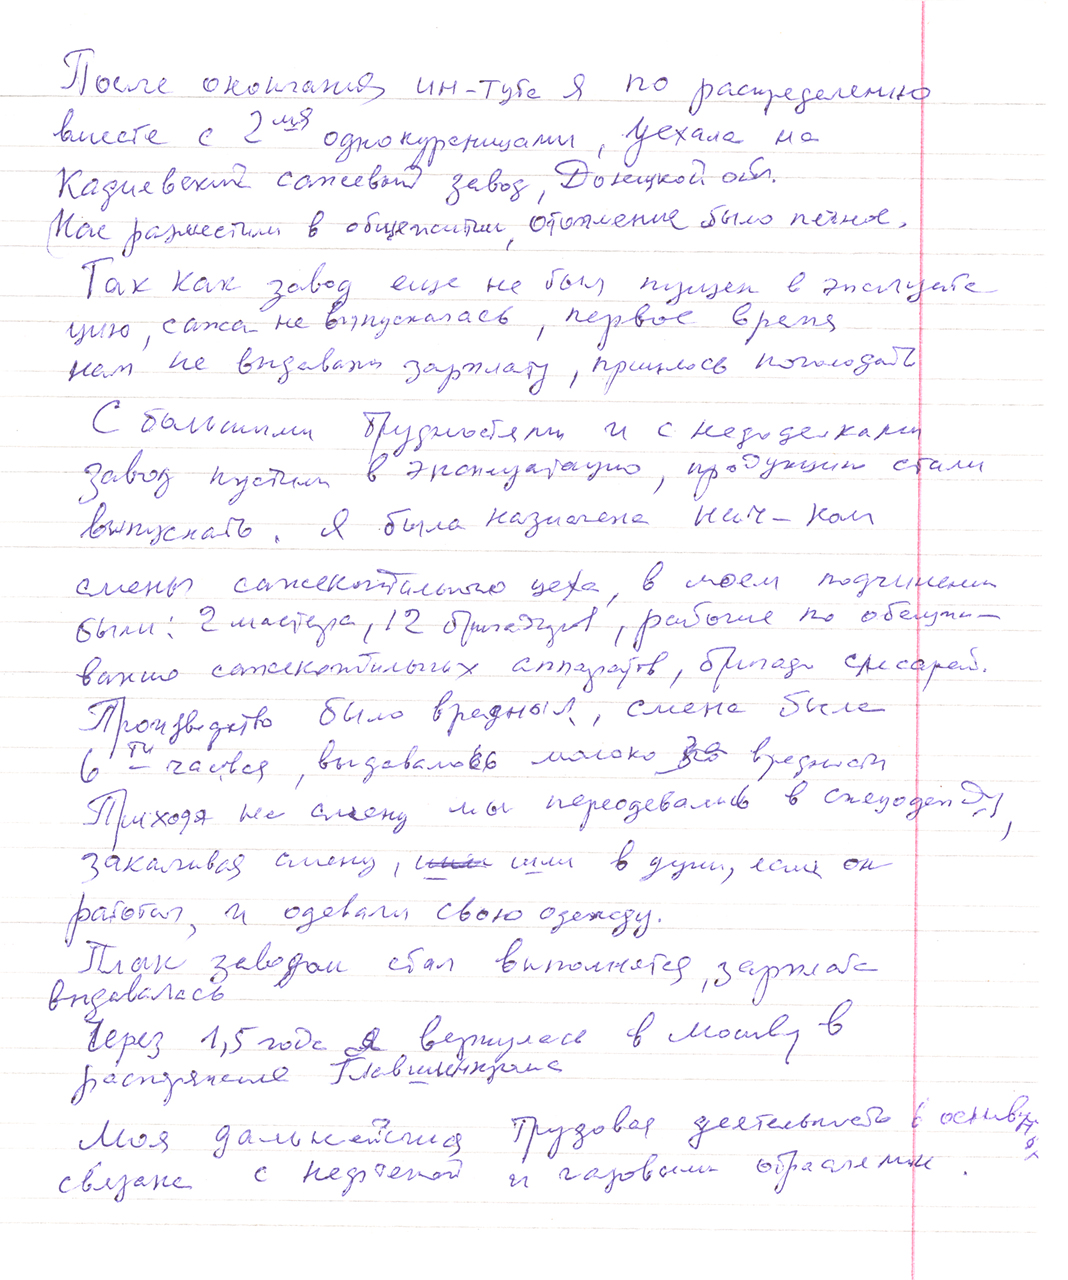 После окончания ин-тута я по распределению
вместе с 2мя однокурсницами, уехала на
Кадиевский сажевый завод, Донецкой обл.
Нас разместили в общежитии, отопление было печное.
Так как завод еще не был пущен в эксплуата
цию, сажа не выпускалась, первое время
нам не выдавали зарплату, пришлось поголодать
С большими трудностями и с недоделками
завод пустили в эксплуатацию, продукцию стали
выпускать. Я была назначена нач-ком
смены сажекоптильного цеха, в моем подчинении
были: 2 мастера, 12 бригадиров, рабочие по обслужи-
ванию сажекоптильных аппаратов, бригада слесарей.
Производство было вредным, смена была
6ти часовая, выдавалось молоко за вредность
Приходя на смену мы переодевались в спецодежду,
заканчивая смену, шли в душ, если он
работал, и одевали свою одежду.
План заводом стал выполнятся, зарплата
выдавалась
Через 1,5 года я вернулась в Москву в
распоряжение Главшинпрома
Моя дальнейшая трудовая деятельность в основном
связана с нефтяной и газовыми отраслями.